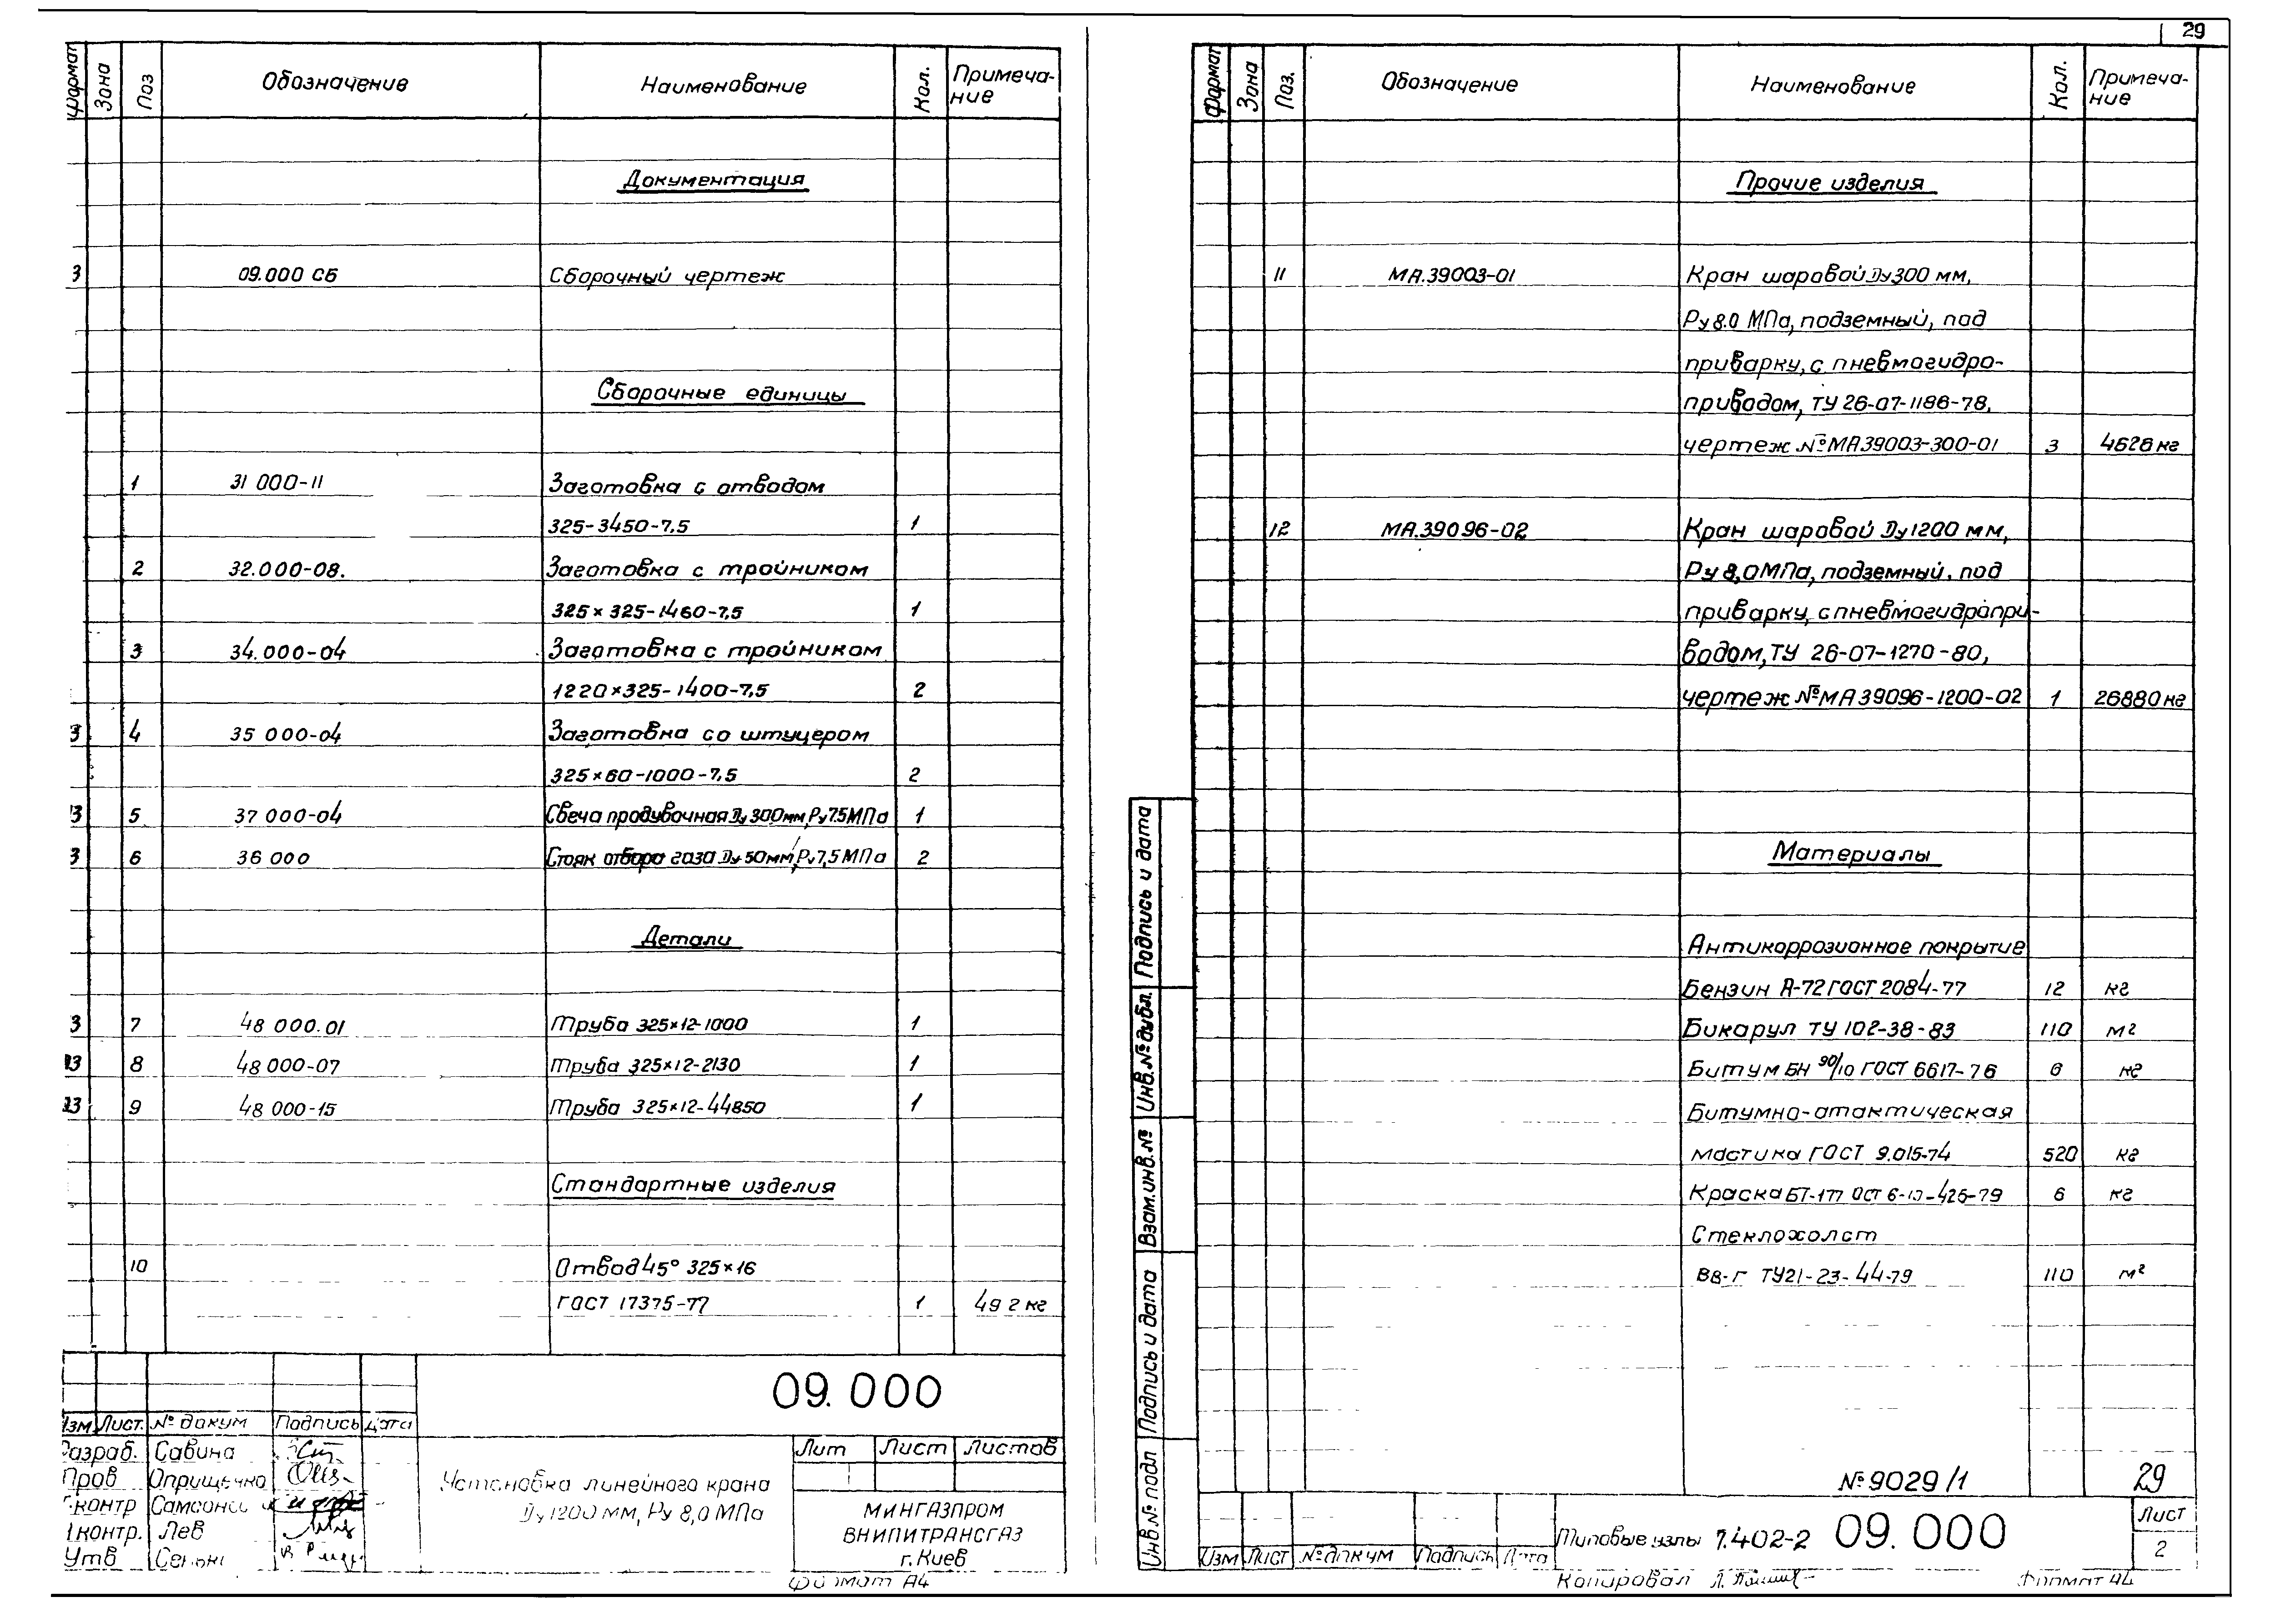 29
Формат Зона Поз Обозначение Наименование Кол. Примеча-
ние
Документация
3 09.000 СБ Сборочный чертеж
Сборочные единицы
1 31 000-11 Заготовка с отводом
325-3450-7,5 1
2 32.000-08. Заготовка с тройником
325×325-1460-7,5 1
3 34.000-04 Заготовка с тройником
1220×325-1400-7,5 2
3 4 35 000-04 Заготовка со штуцером
325×60-1000-7,5 2
13 5 37 000-04 Свеча продувочная Ду 300мм, Ру 7.5 МПа 1
3 6 36 000 Стояк отбора газа Ду 50мм, Ру 7,5 МПа 2
Детали
3 7 48 000.01 Труба 325×12-1000 1
13 8 48 000-07 Труба 325×12-2130 1
13 9 48 000-15 Труба 325×12-44850 1
Стандартные изделия
10 Отвод 45° 325×16
ГОСТ 17375-77 1 49 2 кг
09.000
Изм Лист. № докум Подпись Дата
Разраб. Савина
Пров Оприщенко
Т.контр Самсоно
контр. Лев
Утв
Установка линейного крана
Ду 1200 мм, Ру 8,0 МПа
Лит Лист Листов
МИНГАЗПРОМ
ВНИПИТРАНСГАЗ
г. Киев
Формат А4
Формат Зона Поз. Обозначение Наименование Кол. Примеча-
ние
Прочие изделия
11 МА.39003-01 Кран шаровой Ду 300 мм,
Ру 8.0 МПа, подземный, под
приварку, с пневмогидро-
приводом, ТУ 26-07-1186-78,
чертеж №МА39003-300-01 3 4626 кг
12 МА.39096-02 Кран шаровой Ду 1200 мм,
Ру 8,0 МПа, подземный, под
приварку, с пневмогидропри-
водом, ТУ 26-07-1270-80,
чертеж №МА39096-1200-02 1 26880 кг
Материалы
Антикоррозионное покрытие
Бензин А-72 ГОСТ 2084-77 12 кг
Бикарул ТУ 102-38-83 110 м²
Битум БН 90/10 ГОСТ 6617-76 6 кг
Битумно-атактическая
мастика ГОСТ 9.015-74 520 кг
Краска БТ-177 ОСТ 6-10-426-79 6 кг
Стеклохолст
ВВ-Г ТУ21-23-44-79 110 м²
Подпись и дата
Инв.№ дубл.
Взам.инв.№
Подпись и дата
Инв.№ подл
№ 9029/1 29
Изм Лист № докум Подпись Дата
Типовые узлы 7.402-2 09.000
Лист
2
Копировал
Формат А4